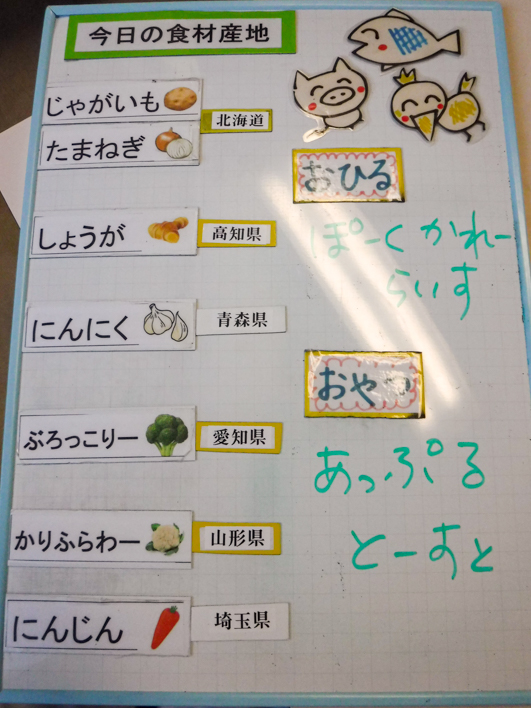 今日の食材産地
じゃがいも
北海道
たまねぎ
しょうが 高知県
にんにく 青森県
ぶろっこりー 愛知県
かりふらわー 山形県
にんじん 埼玉県
おひる
ぽーくかれー
らいす
おやつ
あっぷる
とーすと